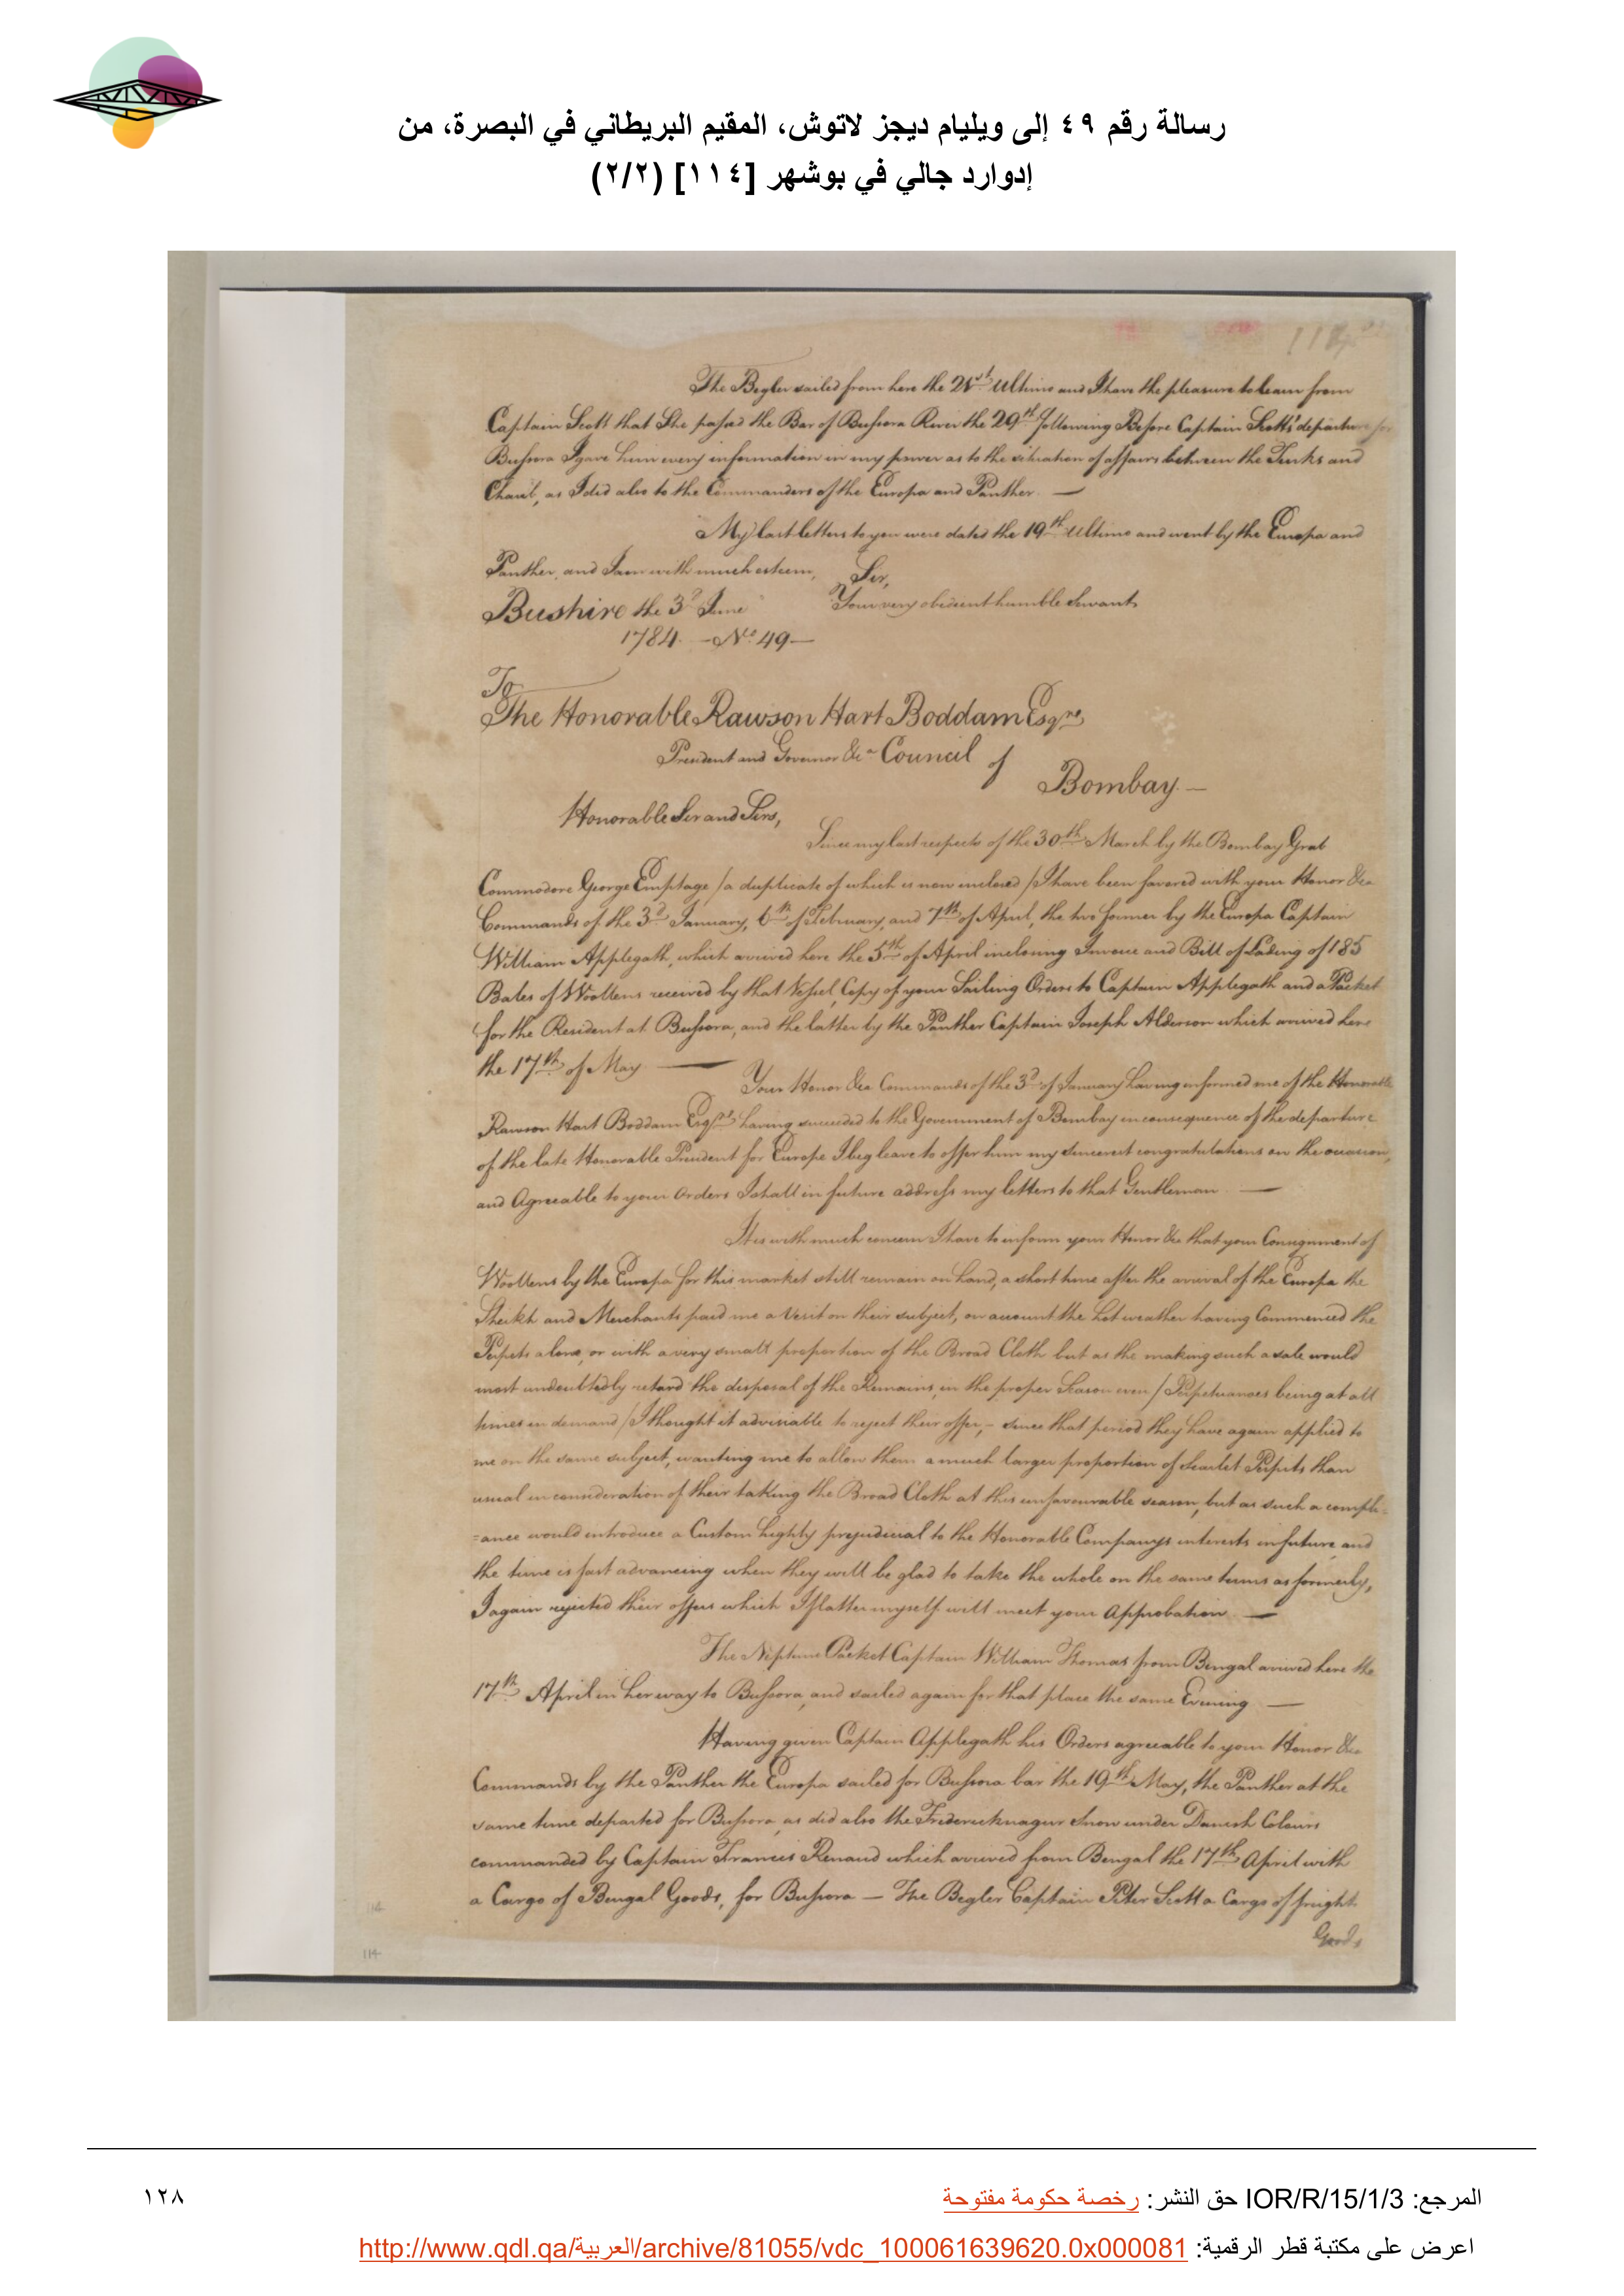 رسالة رقم ٤٩ إلى ويليام ديجز لاتوش، المقيم البريطاني في البصرة، من
إدوارد جالي في بوشهر [١١٤] (٢/٢)
114
The Begler sailed from here the 21st Ultimo and I have the pleasure to learn from
Captain Scott that She passed the Bar of Bussora River the 29th following Before Captain Scotts' departure for
Bussora I gave him every information in my power as to the situation of affairs between the Turks and
Chaub, as I did also to the Commanders of the Europa and Panther. —
My last letters to you were dated the 19th Ultimo and went by the Europa and
Panther, and I am with much esteem, Sir,
Bushire the 3d June Your very obedient humble Servant
1784. — No. 49 —
To
The Honorable Rawson Hart Boddam Esqre
President and Governor &ca Council of
Bombay. —
Honorable Sir and Sirs,
Since my last respects of the 30th March by the Bombay Grab
Commodore George Emptage /a duplicate of which is now inclosed/ I have been favored with your Honor &ca
Commands of the 3d January, 6th of February, and 7th of April, the two former by the Europa Captain
William Applegath, which arrived here the 5th of April inclosing Invoice and Bill of Lading of 185
Bales of Woollens received by that Vessel, Copy of your Sailing Orders to Captain Applegath and a Packet
for the Resident at Bussora, and the latter by the Panther Captain Joseph Alderson which arrived here
the 17th of May —
Your Honor &ca Commands of the 3d of January having informed me of the Honorable
Rawson Hart Boddam Esqre having succeeded to the Government of Bombay in consequence of the departure
of the late Honorable President for Europe I beg leave to offer him my sincerest congratulations on the occasion,
and Agreeable to your Orders I shall in future address my letters to that Gentleman —
It is with much concern I have to inform your Honor &ca that your Consignment of
Woollens by the Europa for this market still remain on hand, a short time after the arrival of the Europa the
Sheikh and Merchants paid me a Visit on their subject, on account the hot weather having Commenced the
Perpets alone, or with a very small proportion of the Broad Cloth but as the making such a sale would
most undoubtedly retard the disposal of the Remains, in the proper Season even /Perpetuanoes being at all
times in demand/ I thought it advisiable to reject their offer, – since that period they have again applied to
me on the same subject, wanting me to allow them a much larger proportion of Scarlet Perpets than
usual in consideration of their taking the Broad Cloth at this unfavourable season, but as such a compli-
=ance would introduce a Custom highly prejudicial to the Honorable Companys interests in future, and
the time is fast advancing when they will be glad to take the whole on the same terms as formerly,
I again rejected their offers which I flatter myself will meet your Approbation —
The Neptune Packet Captain William Thomas from Bengal arrived here the
17th April in her way to Bussora, and sailed again for that place the same Evening —
Having given Captain Applegath his Orders agreeable to your Honor &ca
Commands by the Panther the Europa sailed for Bussora bar the 19th May, the Panther at the
same time departed for Bussora, as did also the Fredericknagur Snow under Danish Colours
commanded by Captain Francis Renaud which arrived from Bengal the 17th April with
a Cargo of Bengal Goods, for Bussora — The Begler Captain Peter Scott a Cargo of freight
Goods
114
114
المرجع: IOR/R/15/1/3 حق النشر: رخصة حكومة مفتوحة
١٢٨
اعرض على مكتبة قطر الرقمية: http://www.qdl.qa/العربية/archive/81055/vdc_100061639620.0x000081